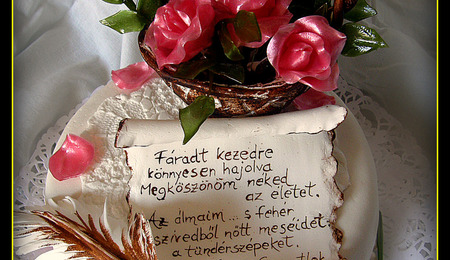 Fáradt kezedre
könnyesen hajolva
Megköszönöm néked
az életet.
Az álmaim... s fehér
szívedből nőtt meséidet
a tündérszépeket.